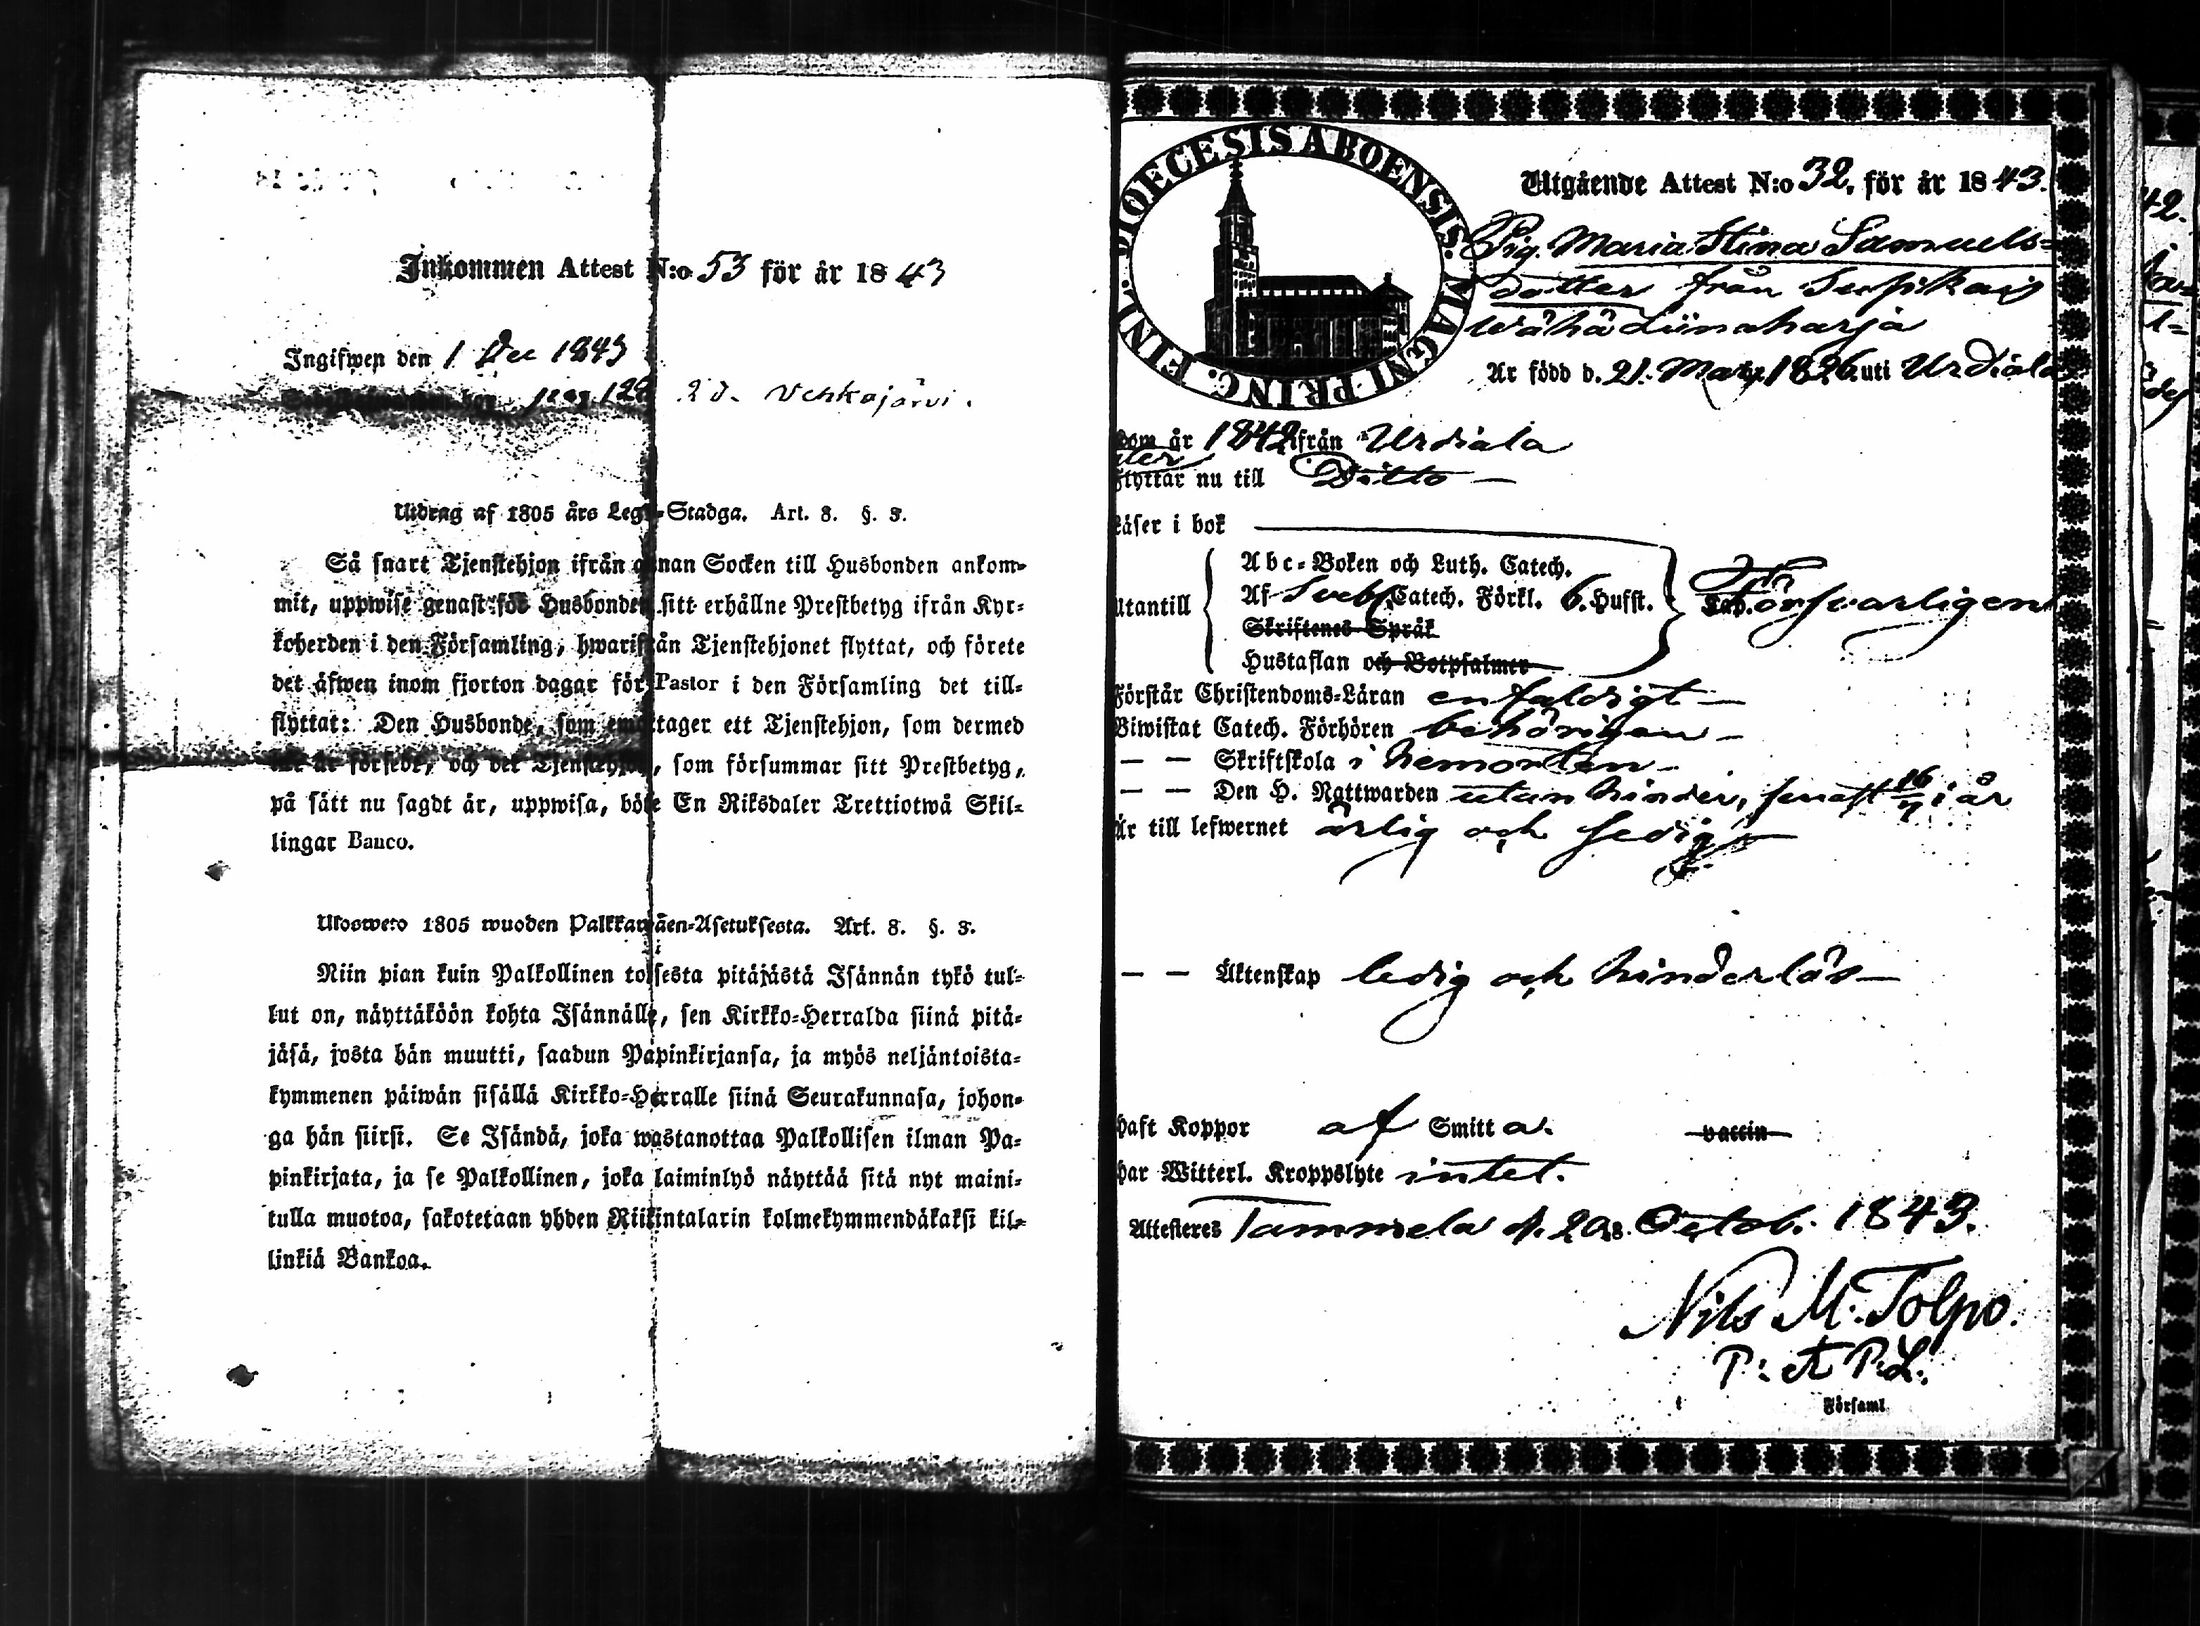 Inkommen Attest N:o 53 för år 1843
Ingifwen den 1 Dec 1843
pag 129 2 d. Vehkajärvi.
Utdrag af 1805 års Lego-Stadga. Art. 8. §. 3.
Så snart Tjenstehjon ifrån annan Socken till Husbonden ankom-
mit, uppwise genast för Husbonden sitt erhållne Prestbetyg ifrån Kyr-
koherden i den Församling, hwarifrån Tjenstehjonet flyttat, och förete
det äfwen inom fjorton dagar för Pastor i den Församling det till-
flyttat: Den Husbonde, som emottager ett Tjenstehjon, som dermed
är försedt, och det Tjenstehjon, som försummar sitt Prestbetyg,
på sätt nu sagdt är, uppwisa, böte En Riksdaler Trettiotwå Skil-
lingar Banco.
Uloswe:o 1805 wuoden Palkkawäen-Asetuksesta. Art. 8. §. 3.
Niin pian kuin Palkollinen toisesta pitäjästä Isännän tykö tul-
lut on, näyttäköön kohta Isännälle, sen Kirkko-Herralda siinä pitä-
jäsä, josta hän muutti, saadun Papinkirjansa, ja myös neljäntoista-
kymmenen päiwän sisällä Kirkko-Herralle siinä Seurakunnasa, johon-
ga hän siirsi. Se Isändä, joka wastanottaa Palkollisen ilman Pa-
pinkirjata, ja se Palkollinen, joka laiminlyö näyttää sitä nyt maini-
tulla muotoa, sakotetaan yhden Riikintalarin kolmekymmendäkaksi kil-
linkiä Bankoa.
DIOECESIS ABOENSIS. MAGNI PRINC. FINL.
Utgående Attest N:o 32, för år 1843.
Pig. Maria Stina Samuels-
dotter från
Wähä Liinaharja
Är född d. 21. Mart. 1826. uti Urdiala
kom år 1842 ifrån Urdiala
flyttar nu till Ditto —
Läser i bok
Abc-Boken och Luth. Catech.
utantill Af Sveb. Catech. Förkl. 6. Hufst. Försvarligen
Skriftenes Språk
Hustaflan och Botpsalmer
Förstår Christendoms-Läran enfaldigt —
Biwistat Catech. Förhören behörigen —
— — Skriftskola i hemorten —
— — Den H. Nattwarden utan hinder, senast 16/7 i år
Är till lefwernet ärlig och sedig —
— — Äktenskap ledig och hinderlös —
haft Koppor af Smitta. vaccin
har Witterl. Kroppslyte intet.
Attesteras Tammela d. 20. Octob. 1843.
Nils M. Tolpo.
P: A P:L:
Församl